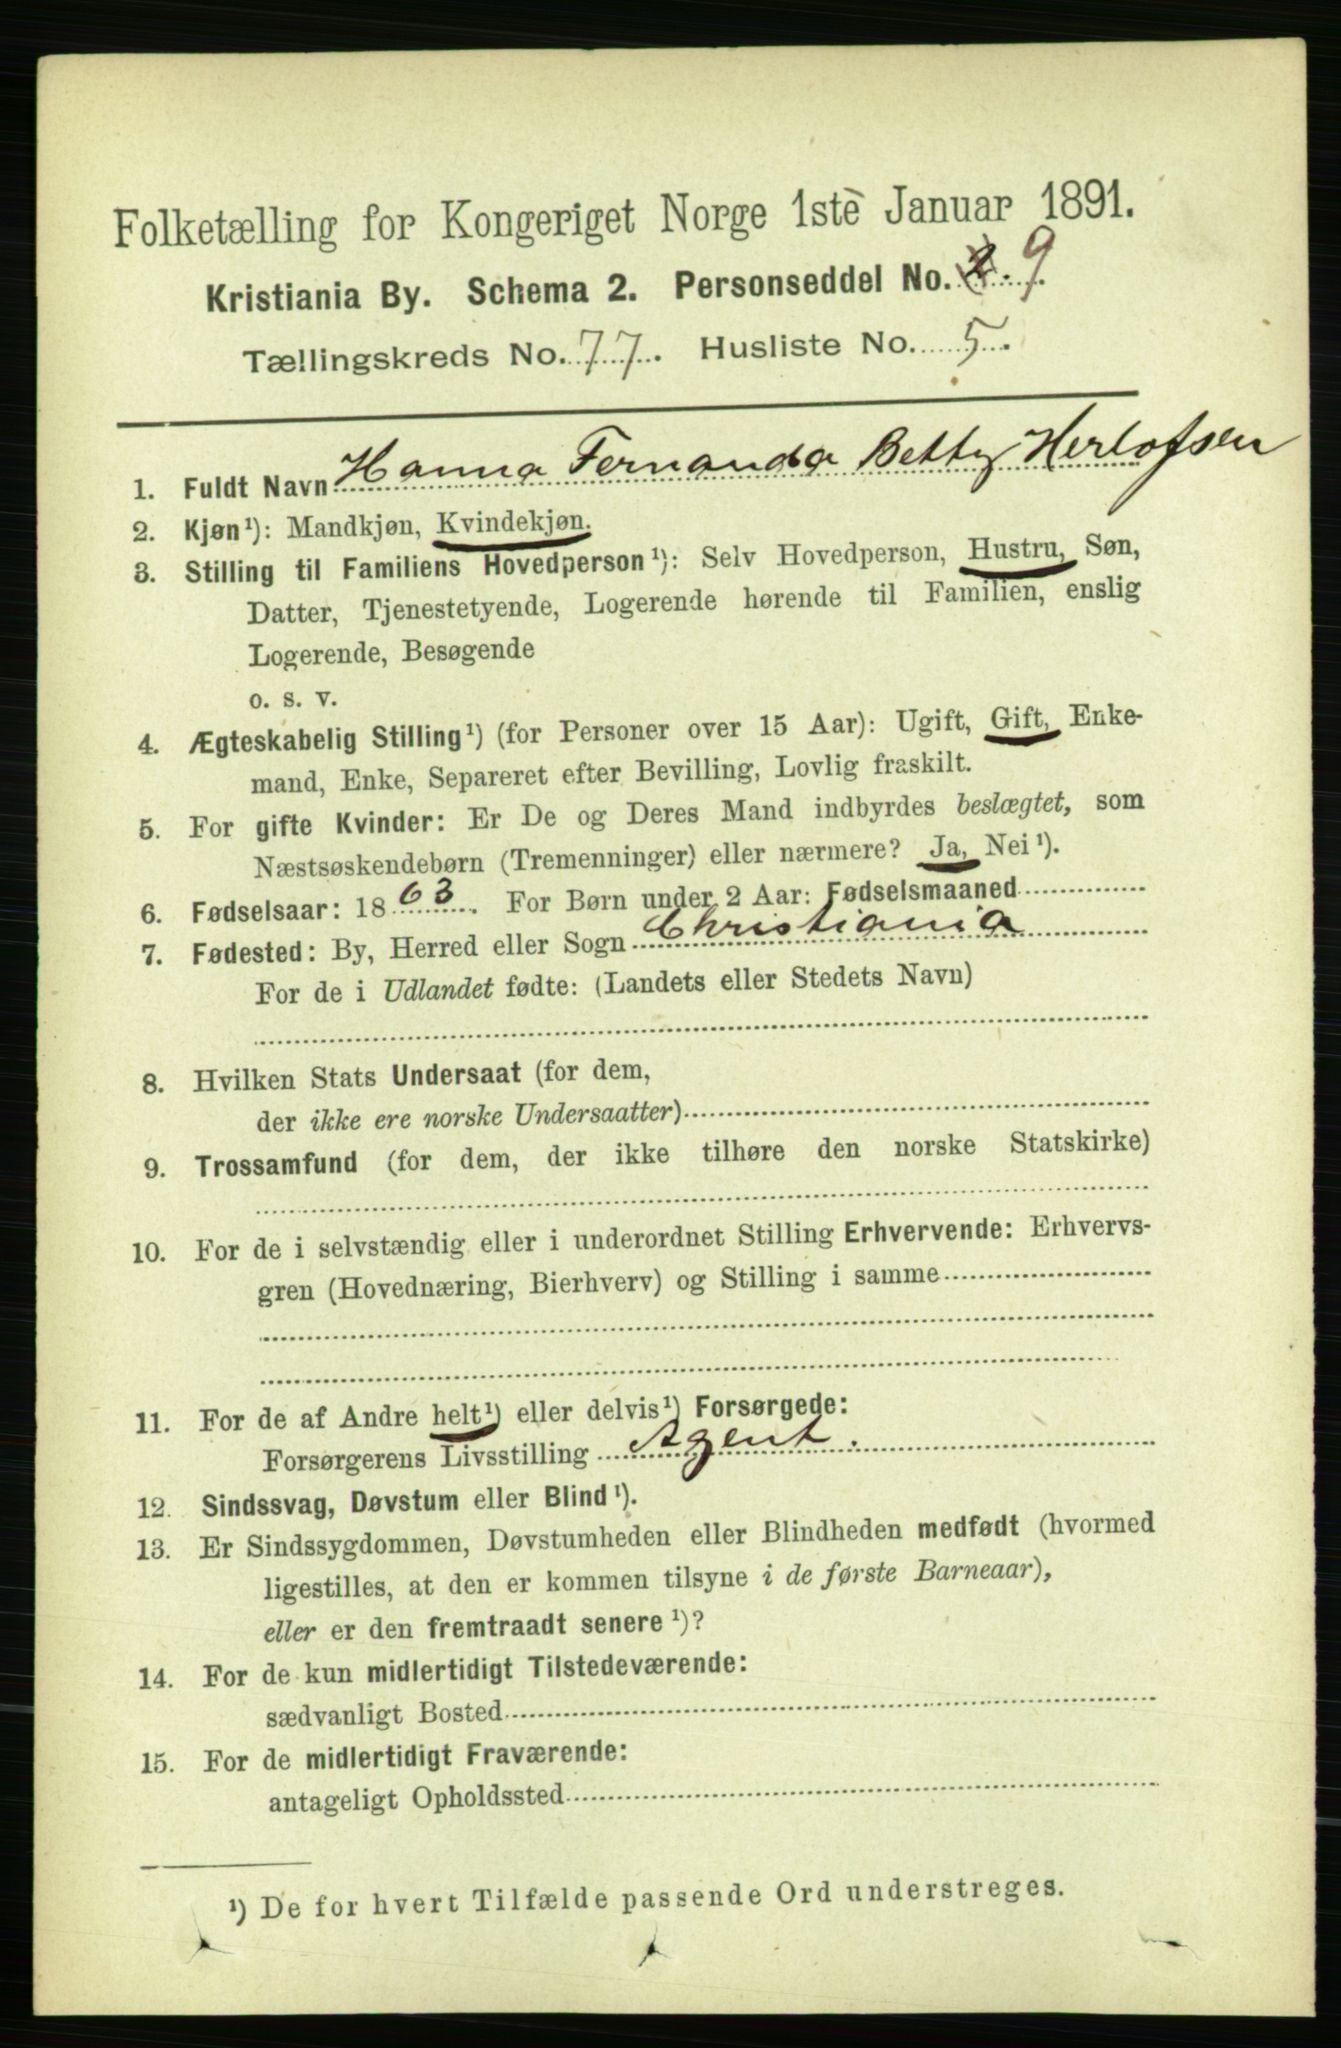 Folketælling for Kongeriget Norge 1ste Januar 1891.
Kristiania By. Schema 2. Personseddel No. 9.
Tællingskreds No. 77. Husliste No. 5.
1. Fuldt Navn Hanna Fernanda Betty Herlofsen
2. Kjøn¹): Mandkjøn, Kvindekjøn.
3. Stilling til Familiens Hovedperson¹): Selv Hovedperson, Hustru, Søn,
Datter, Tjenestetyende, Logerende hørende til Familien, enslig
Logerende, Besøgende
o. s. v.
4. Ægteskabelig Stilling¹) (for Personer over 15 Aar): Ugift, Gift, Enke-
mand, Enke, Separeret efter Bevilling, Lovlig fraskilt.
5. For gifte Kvinder: Er De og Deres Mand indbyrdes beslægtet, som
Næstsøskendebørn (Tremenninger) eller nærmere? Ja, Nei¹).
6. Fødselsaar: 1863. For Børn under 2 Aar: Fødselsmaaned
7. Fødested: By, Herred eller Sogn Christiania
For de i Udlandet fødte: (Landets eller Stedets Navn)
8. Hvilken Stats Undersaat (for dem,
der ikke ere norske Undersaatter)
9. Trossamfund (for dem, der ikke tilhøre den norske Statskirke)
10. For de i selvstændig eller i underordnet Stilling Erhvervende: Erhvervs-
gren (Hovednæring, Bierhverv) og Stilling i samme
11. For de af Andre helt¹) eller delvis¹) Forsørgede:
Forsørgerens Livsstilling Agent.
12. Sindssvag, Døvstum eller Blind¹).
13. Er Sindssygdommen, Døvstumheden eller Blindheden medfødt (hvormed
ligestilles, at den er kommen tilsyne i de første Barneaar),
eller er den fremtraadt senere¹)?
14. For de kun midlertidigt Tilstedeværende:
sædvanligt Bosted
15. For de midlertidigt Fraværende:
antageligt Opholdssted
¹) De for hvert Tilfælde passende Ord understreges.